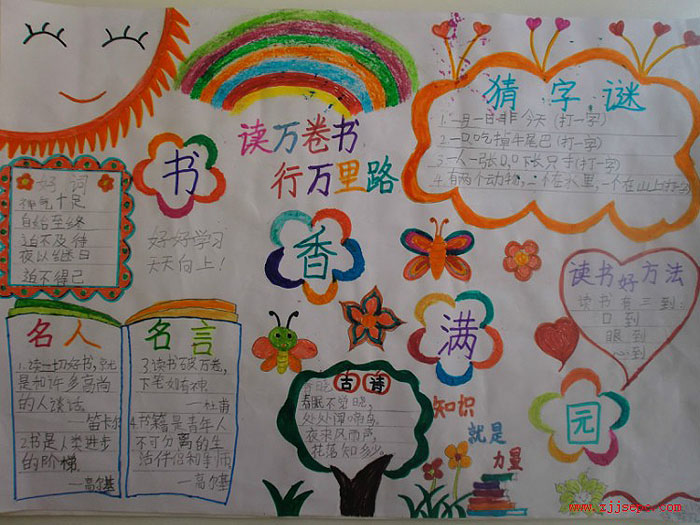 读万卷书
行万里路
书
香
满
园
猜字谜
1.一月一日非今天(打一字)
2.一只吃掉牛尾巴(打一字)
4.有两个动物,一个在水里,一个在山上打
好词
神气十足
自始至终
迫不及待
夜以继日
迫不得已
好好学习
天天向上!
读书好方法
读书有三到:
口到
眼到
心到
名人
1.读一切好书,就
是和许多高尚
的人谈话
—笛卡尔
2书是人类进步
的阶梯
—高尔基
名言
3.读书破万卷,
下笔如有神
—杜甫
4.书籍是青年人
不可分离的生
活伴侣和导师
—高尔基
古诗
春晓
春眠不觉晓,
处处闻啼鸟。
夜来风雨声,
花落知多少。
知识
就是
力量
www.zjjsepc.com